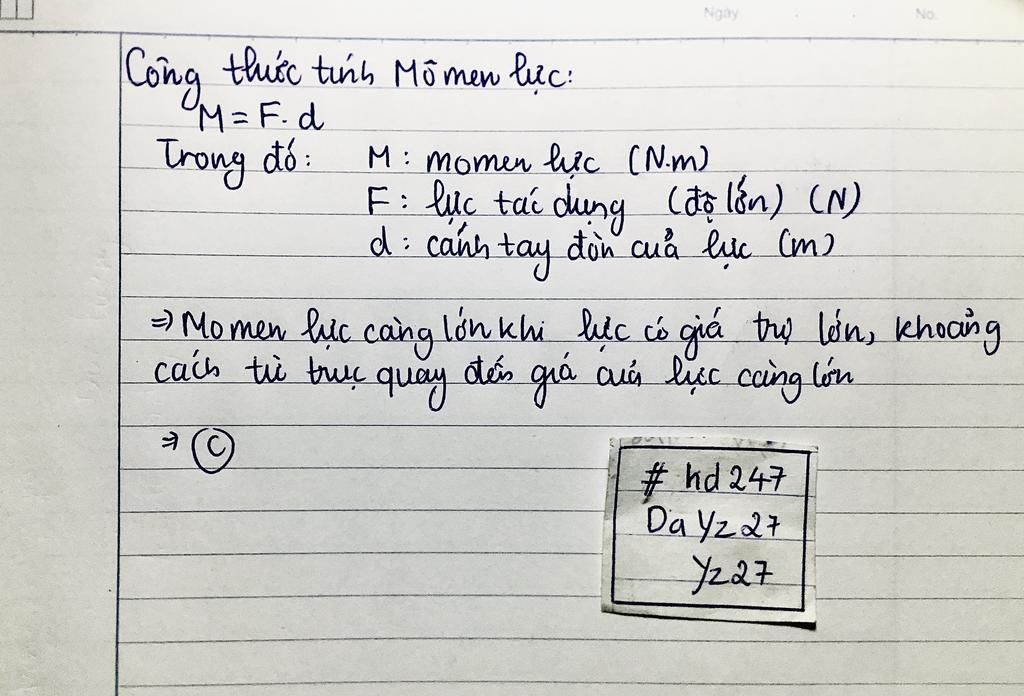 Ngày No.
Công thức tính Mômen lực:
M = F. d
Trong đó: M: momen lực (N.m)
F: lực tác dụng (độ lớn) (N)
d: cánh tay đòn của lực (m)
=> Momen lực càng lớn khi lực có giá trị lớn, khoảng
cách từ trục quay đến giá của lực càng lớn
=> C
# kd247
Da Yz27
Yz27